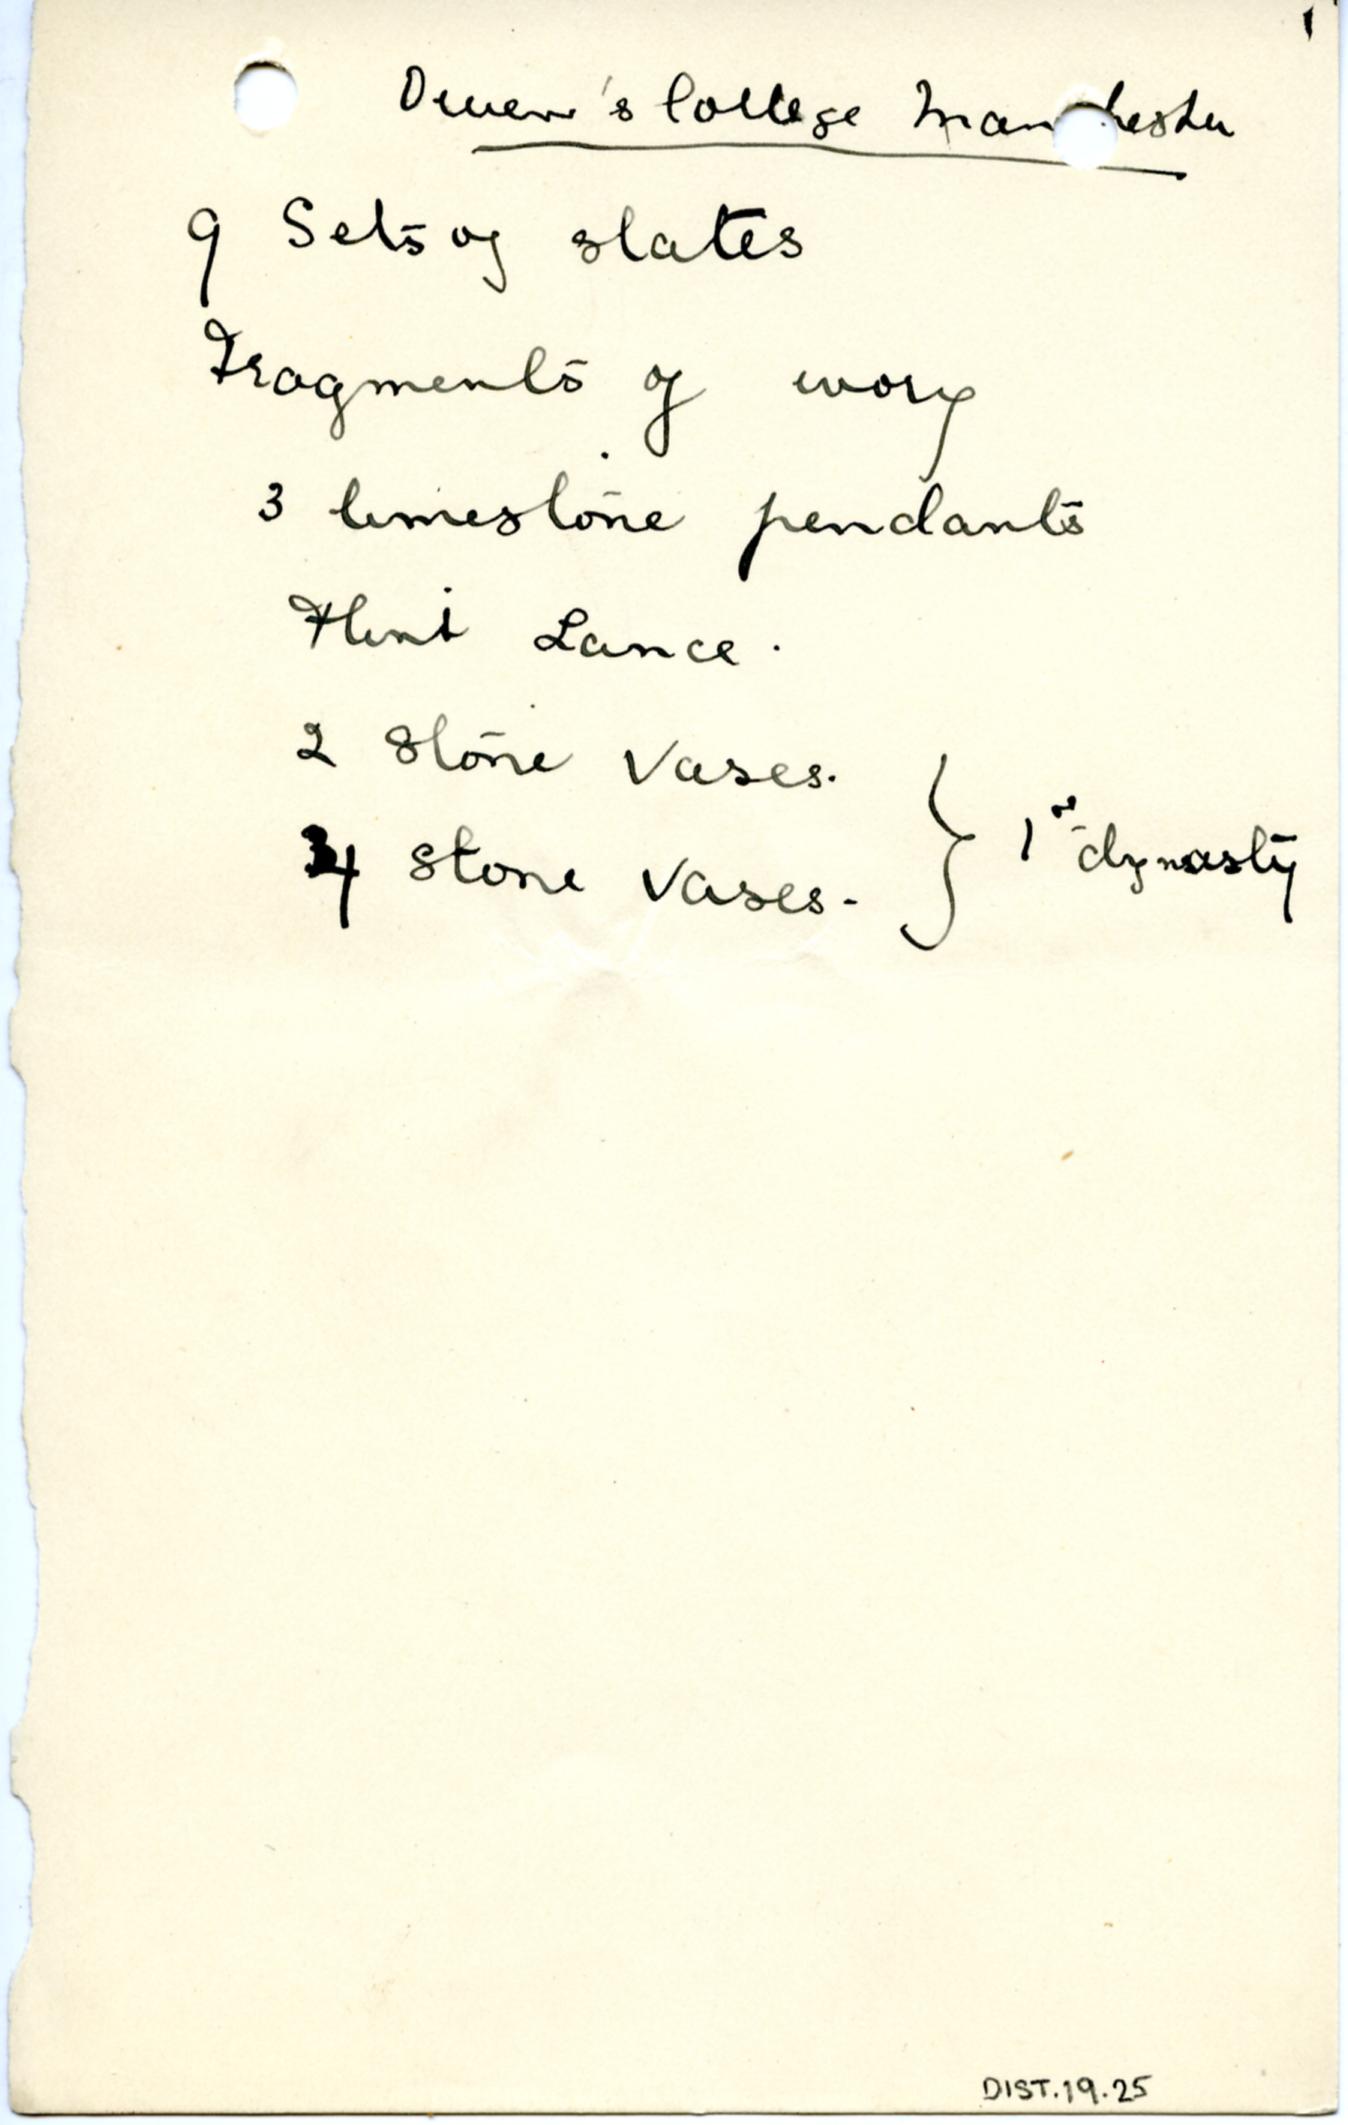 Owen's College Manchester
9 Sets of slates
Fragments of ivory
3 limestone pendants
Flint Lance.
2 Stone Vases.
4 Stone Vases. } 1st dynasty
DIST.19.25